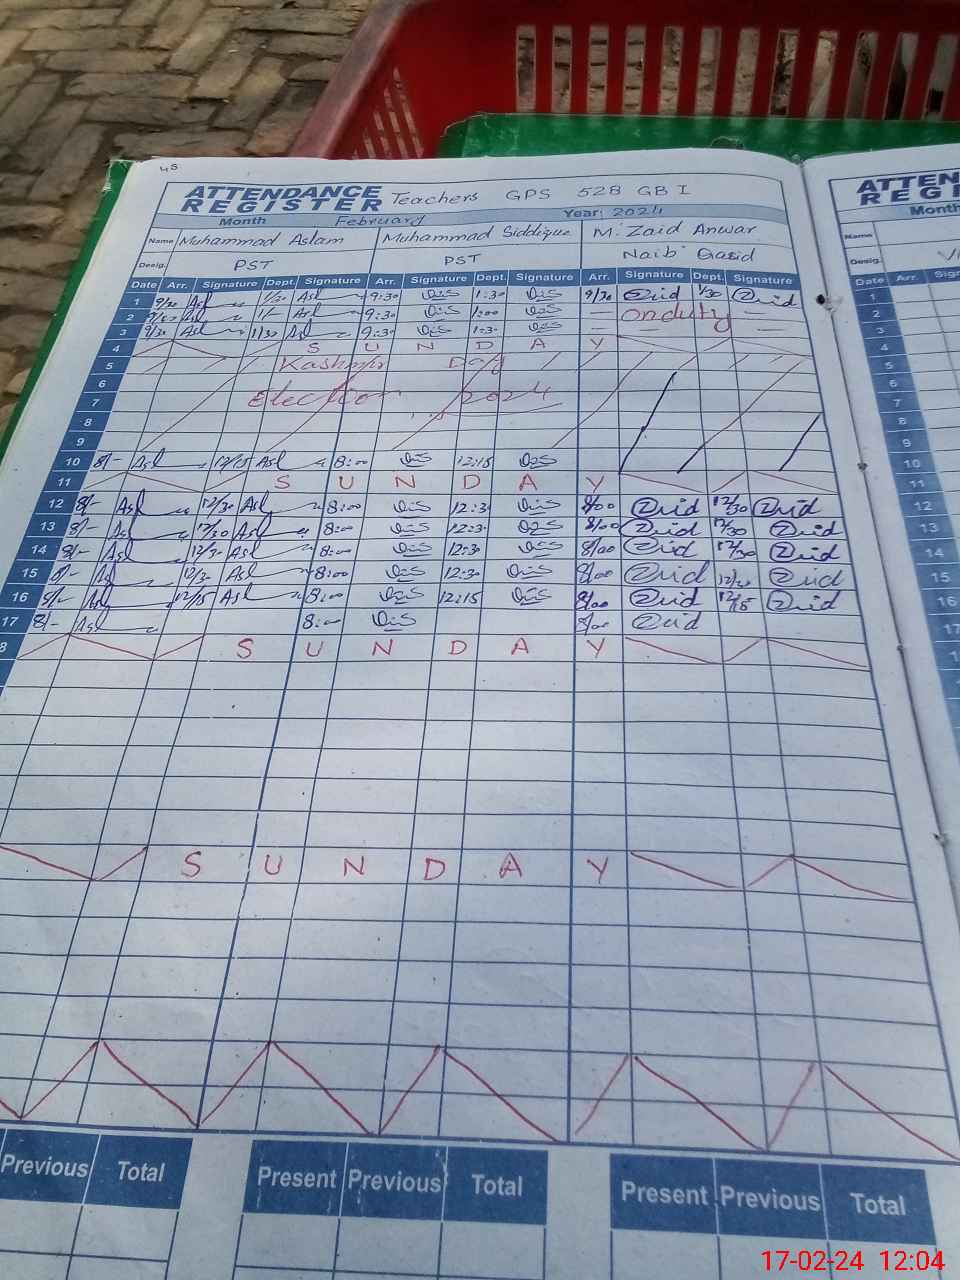 45
ATTENDANCE REGISTER Teachers GPS 528 GB I
ATTEN
REGI
Month February Year: 2024
Month
Name Muhammad Aslam Muhammad Siddique M. Zaid Anwar
Name
Desig. PST PST Naib Qasid
Desig.
Date Arr. Signature Dept. Signature Arr. Signature Dept. Signature Arr. Signature Dept. Signature
Date Arr.
1 9/30 Asl 1/30 Asl 9:30 1:30 9/30 Zaid 1/30 Zaid
2 Asl 1/- Asl 9:30 1:00 — onduty —
3 9/30 Asl 1/30 Asl 9:30 1:30 — —
4 S U N D A Y
5 Kashmir Day
6
7 Election 2024
8
9
10 8/- Asl 12/15 Asl 8:00 12:15
11 S U N D A Y
12 8/- Asl 12/30 Asl 8:00 12:30 8/00 Zaid 12/30 Zaid
13 8/- Asl 12/30 Asl 8:00 12:30 8/00 Zaid 12/30 Zaid
14 8/- Asl 12/30 Asl 8:00 12:30 8/00 Zaid 12/30 Zaid
15 8/- Asl 12/30 Asl 8:00 12:30 8/00 Zaid 12/30 Zaid
16 8/- Asl 12/15 Asl 8:00 12:15 8/00 Zaid 12/15 Zaid
17 8/- Asl 8:00 8/00 Zaid
8 S U N D A Y
S U N D A Y
1
2
3
4
5
6
7
8
9
10
11
12
13
14
15
16
17
Previous Total Present Previous Total Present Previous Total
17-02-24 12:04